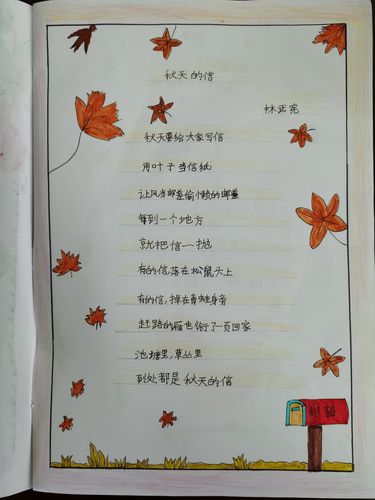 秋天的信
林武宪
秋天要给大家写信
用叶子当信纸
让风当邮差偷懒的邮差
每到一个地方
就把信一抛
有的信,落在松鼠头上
有的信,掉在青蛙身旁
赶路的雁也衔了一页回家
池塘里,草丛里
到处都是秋天的信
邮箱